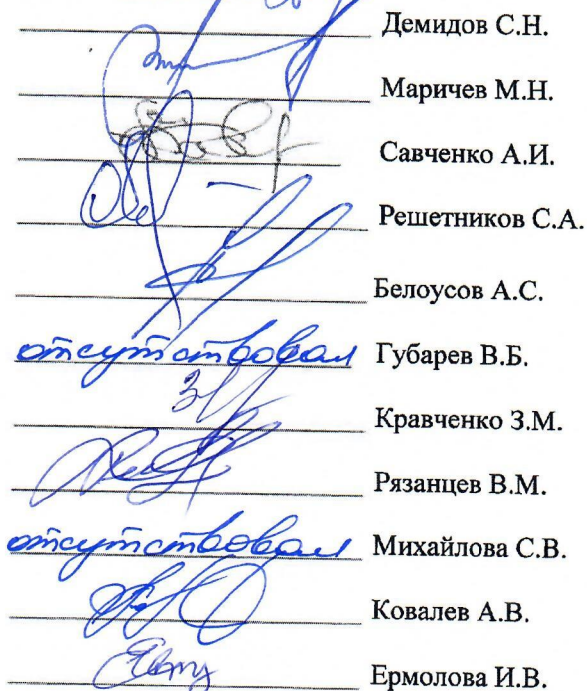 Демидов С.Н.
Маричев М.Н.
Савченко А.И.
Решетников С.А.
Белоусов А.С.
отсутствовал Губарев В.Б.
Кравченко З.М.
Рязанцев В.М.
отсутствовал Михайлова С.В.
Ковалев А.В.
Ермолова И.В.